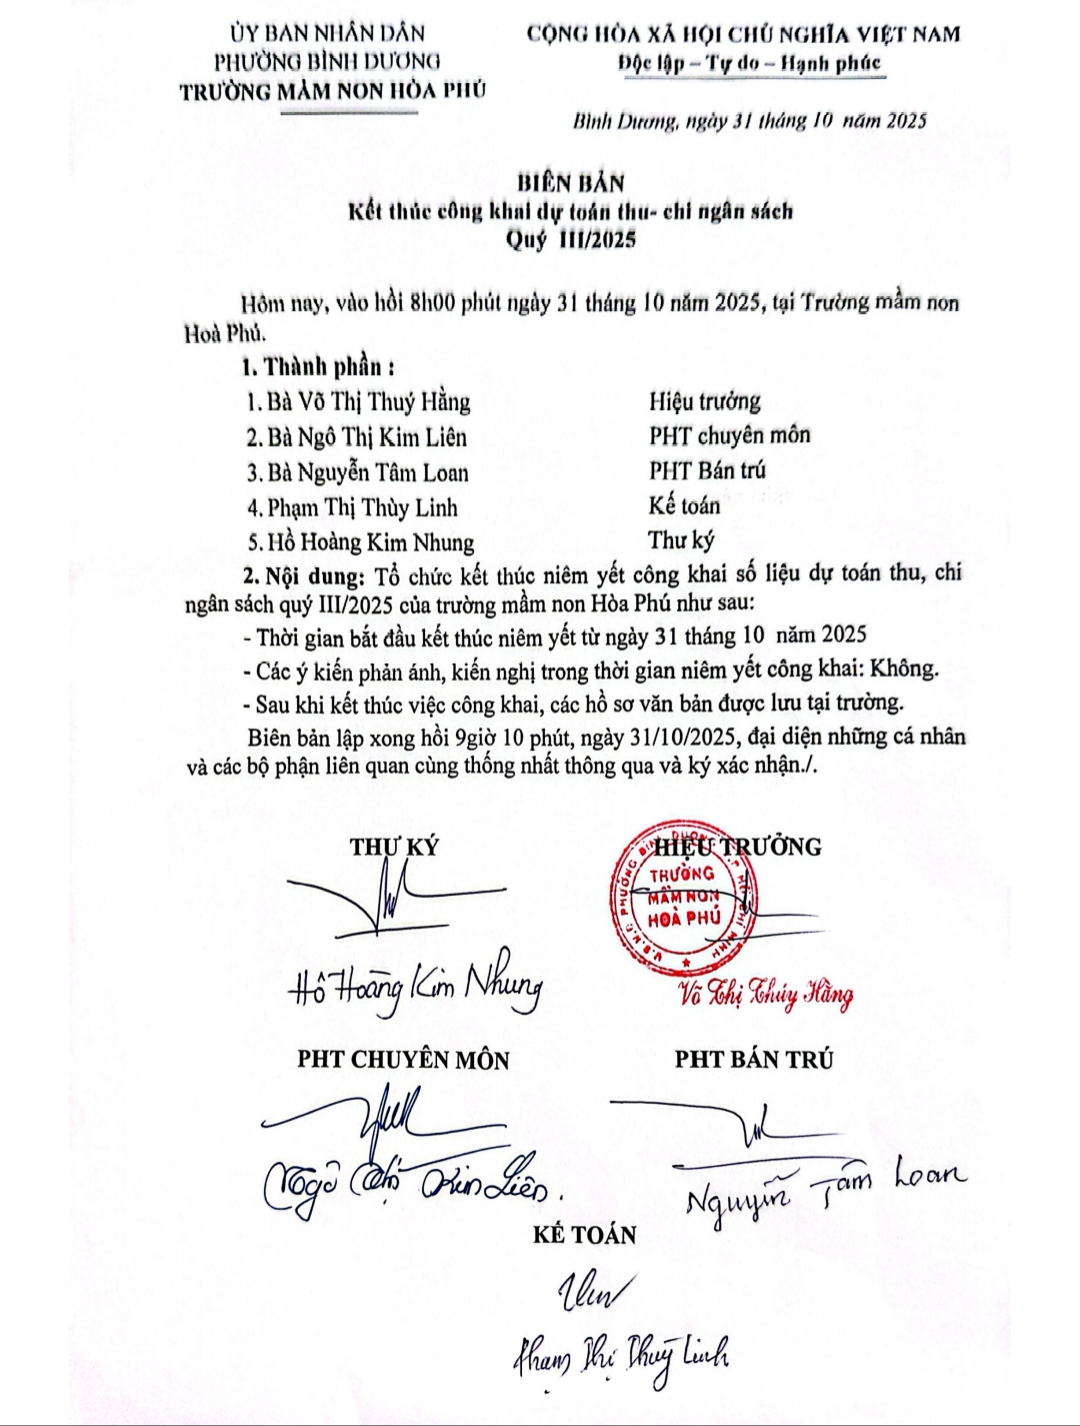 ỦY BAN NHÂN DÂN
PHƯỜNG BÌNH DƯƠNG
TRƯỜNG MẦM NON HÒA PHÚ
CỘNG HÒA XÃ HỘI CHỦ NGHĨA VIỆT NAM
Độc lập – Tự do – Hạnh phúc
Bình Dương, ngày 31 tháng 10 năm 2025
BIÊN BẢN
Kết thúc công khai dự toán thu- chi ngân sách
Quý III/2025
Hôm nay, vào hồi 8h00 phút ngày 31 tháng 10 năm 2025, tại Trường mầm non
Hoà Phú.
1. Thành phần :
1. Bà Võ Thị Thuý Hằng Hiệu trưởng
2. Bà Ngô Thị Kim Liên PHT chuyên môn
3. Bà Nguyễn Tâm Loan PHT Bán trú
4. Phạm Thị Thùy Linh Kế toán
5. Hồ Hoàng Kim Nhung Thư ký
2. Nội dung: Tổ chức kết thúc niêm yết công khai số liệu dự toán thu, chi
ngân sách quý III/2025 của trường mầm non Hòa Phú như sau:
- Thời gian bắt đầu kết thúc niêm yết từ ngày 31 tháng 10 năm 2025
- Các ý kiến phản ánh, kiến nghị trong thời gian niêm yết công khai: Không.
- Sau khi kết thúc việc công khai, các hồ sơ văn bản được lưu tại trường.
Biên bản lập xong hồi 9giờ 10 phút, ngày 31/10/2025, đại diện những cá nhân
và các bộ phận liên quan cùng thống nhất thông qua và ký xác nhận./.
THƯ KÝ
Hồ Hoàng Kim Nhung
HIỆU TRƯỞNG
U.B.N.D PHƯỜNG BÌNH DƯƠNG T.P HỒ CHÍ MINH
TRƯỜNG
MẦM NON
HOÀ PHÚ
Võ Thị Thúy Hằng
PHT CHUYÊN MÔN
Ngô Thị Kim Liên.
PHT BÁN TRÚ
Nguyễn Tâm Loan
KẾ TOÁN
Phạm Thị Thuỳ Linh